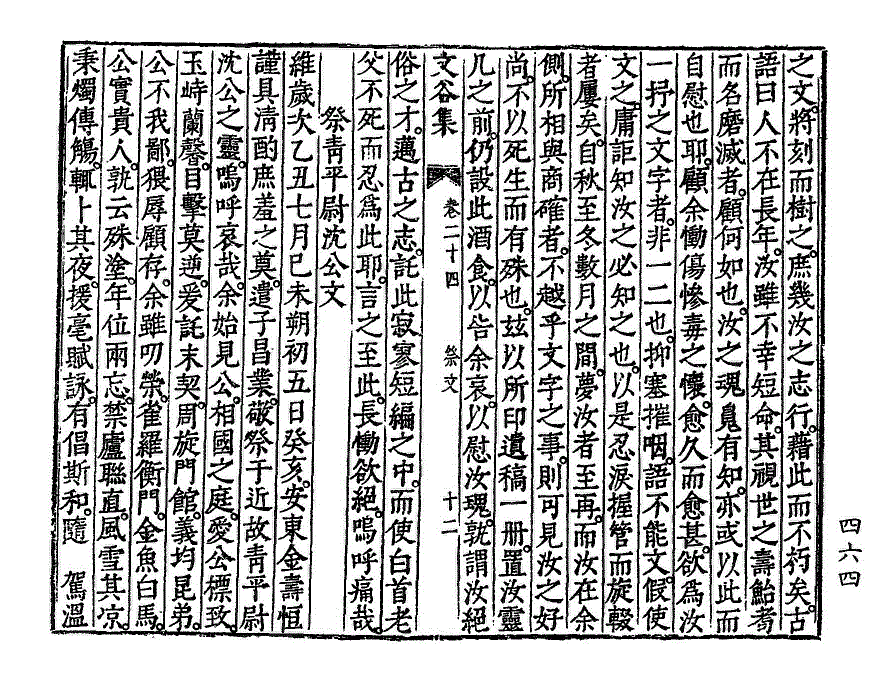 之文。將刻而樹之。庶幾汝之志行。藉此而不朽矣。古
語曰人不在長年。汝雖不幸短命。其視世之壽鮐耇
而名磨滅者。顧何如也。汝之魂鬼有知。亦或以此而
自慰也耶。顧余慟傷慘毒之懷。愈久而愈甚。欲爲汝
一抒之文字者。非一二也。抑塞摧咽。語不能文。假使
文之。庸詎知汝之必知之也。以是忍淚握管而旋輟
者屢矣。自秋至冬數月之間。夢汝者至再。而汝在余
側。所相與商確者。不越乎文字之事。則可見汝之好
尙。不以死生而有殊也。玆以所印遺稿一册。置汝靈
几之前。仍設此酒食。以告余哀。以慰汝魂。孰謂汝絕
文谷集 卷二十四 祭文 十二
俗之才。邁古之志。託此寂寥短編之中。而使白首老
父不死而忍爲此耶。言之至此。長慟欲絕。嗚呼痛哉。
祭靑平尉沈公文
維歲次乙丑七月己未朔初五日癸亥。安東金壽恒
謹具淸酌庶羞之奠。遣子昌業。敬祭于近故靑平尉
沈公之靈。嗚呼哀哉。余始見公。相國之庭。愛公標致。
玉峙蘭馨。目擊莫逆。爰託末契。周旋門館。義均昆弟。
公不我鄙。猥辱顧存。余雖叨榮。雀羅衡門。金魚白馬。
公實貴人。孰云殊塗。年位兩忘。禁廬聯直。風雪其凉。
秉燭傳觴。輒卜其夜。援毫賦詠。有倡斯和。隨 駕溫
四六四